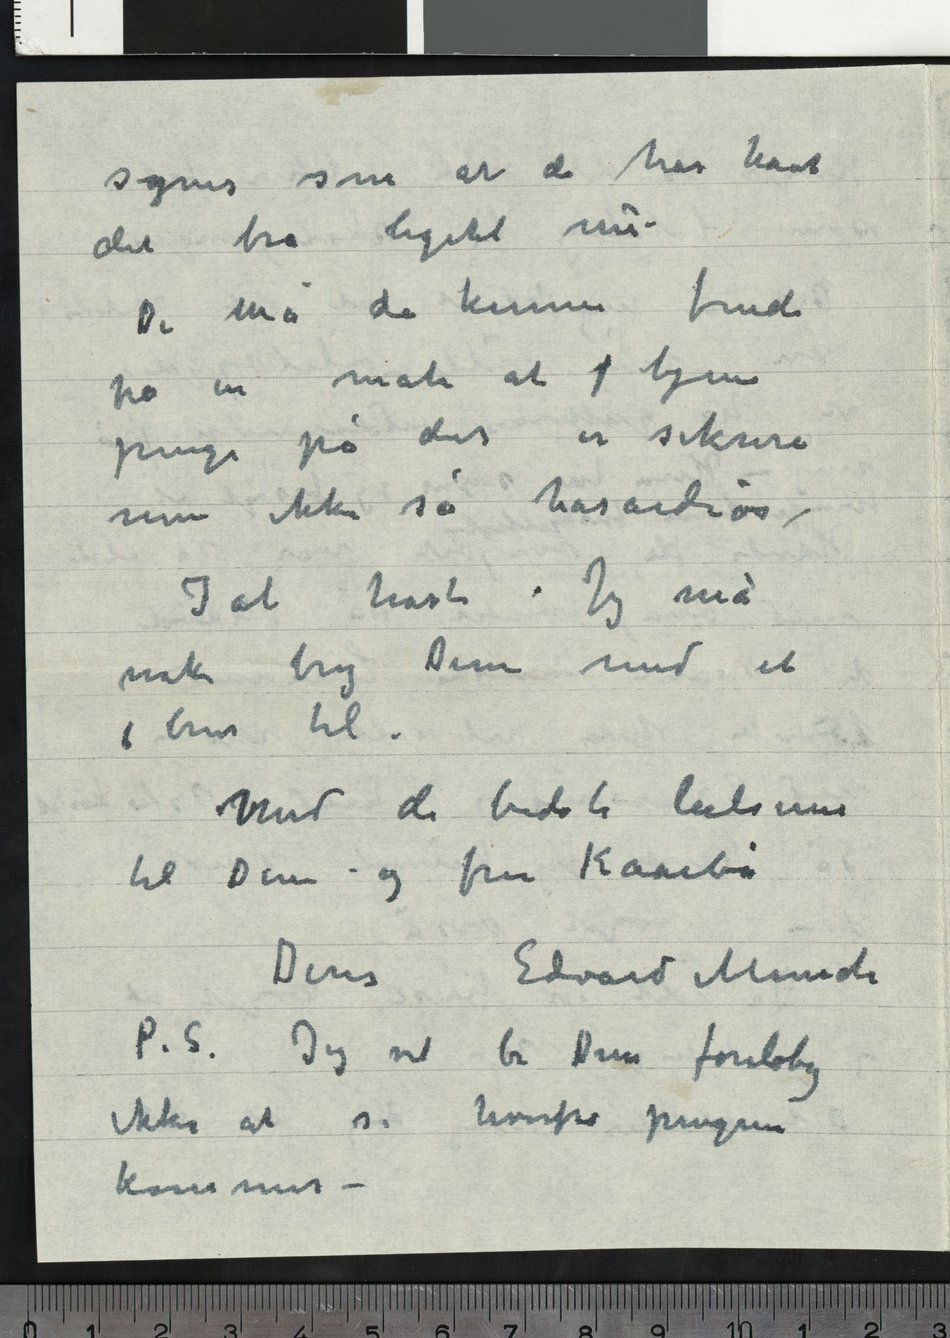 synes som at de har havt
det bra ligetil nu –
De må da kunne finde
på en måte at tjene
penge på der er sikrere
men ikke så hasardiøs /
I al hast. Jeg må
nok bry Dem med et
brev til.
Med de bedste hilsener
til Dem og fru Kaarbø
Deres Edvard Munch
P.S. Jeg vil be Dem foreløbig
ikke at si hvorfra pengene
kommer –
0 1 2 3 4 5 6 7 8 9 10 1 2 3